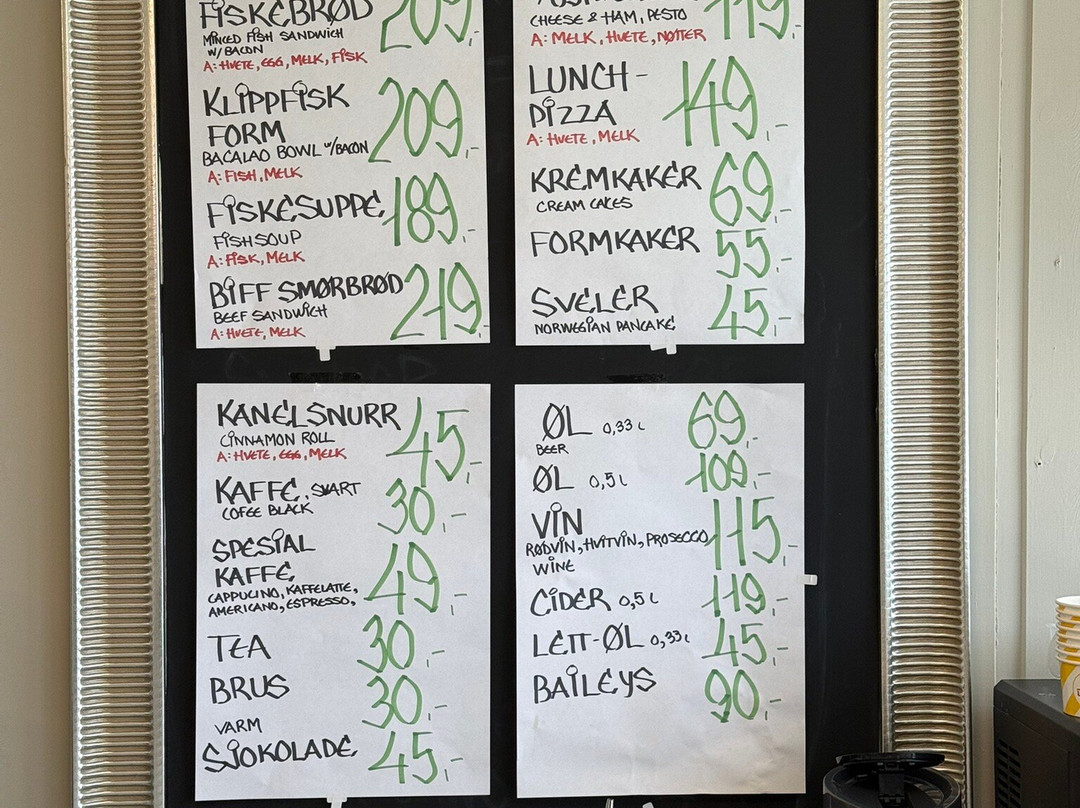 FISKEBRØD 209,-
MINCED FISH SANDWICH
W/BACON
A: HVETE, EGG, MELK, FISK
KLIPPFISK
FORM 209,-
BACALAO BOWL W/BACON
A: FISH, MELK
FISKESUPPE 189,-
FISH SOUP
A: FISK, MELK
BIFF SMØRBRØD 219,-
BEEF SANDWICH
A: HVETE, MELK
CHEESE & HAM, PESTO 119,-
A: MELK, HVETE, NØTTER
LUNCH-
PIZZA 149,-
A: HVETE, MELK
KREMKAKER 69,-
CREAM CAKES
FORMKAKER 55,-
SVELER 45,-
NORWEGIAN PANCAKE
KANELSNURR 45,-
CINNAMON ROLL
A: HVETE, EGG, MELK
KAFFE, SVART 30,-
COFEE BLACK
SPESIAL
KAFFE 49,-
CAPPUCINO, KAFFELATTE,
AMERICANO, ESPRESSO,
TEA 30,-
BRUS 30,-
VARM
SJOKOLADE 45,-
ØL 0,33 L 69,-
BEER
ØL 0,5 L 109,-
VIN 115,-
RØDVIN, HVITVIN, PROSECCO
WINE
CIDER 0,5 L 119,-
LETT-ØL 0,33 L 45,-
BAILEYS 90,-